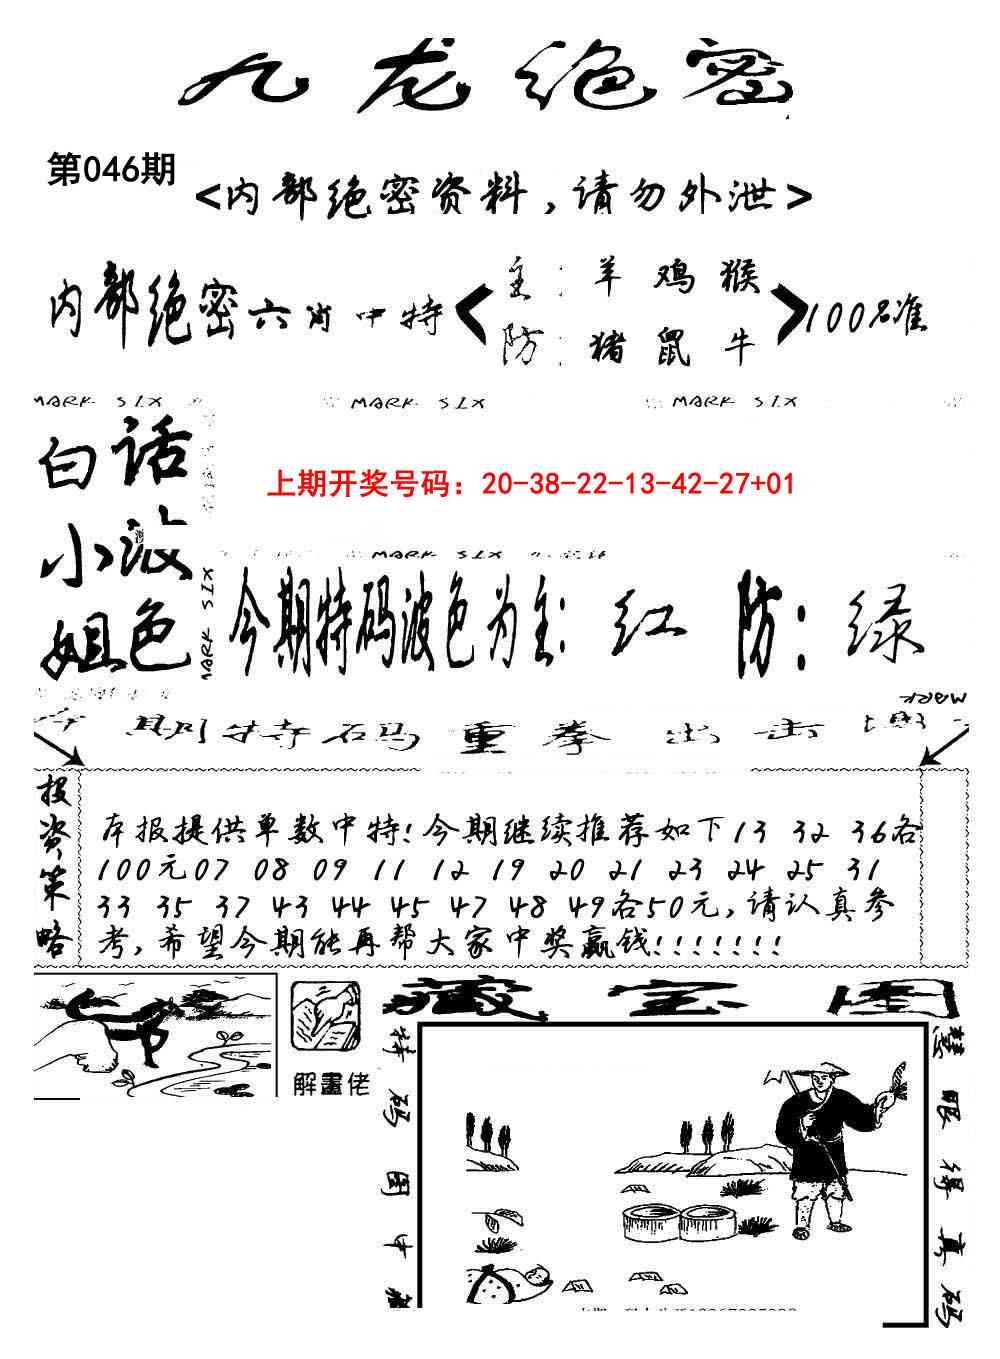 九龙绝密
第046期
<内部绝密资料，请勿外泄>
内部绝密六肖中特
主：羊 鸡 猴
防：猪 鼠 牛
100%准
MARK SIX MARK SIX MARK SIX
白话
小波
姐色
MARK SIX
上期开奖号码：20-38-22-13-42-27+01
MARK SIX
今期特码波色为主：红 防：绿
MARK
期特码重拳出击
投资策略
本报提供单数中特！今期继续推荐如下13 32 36各
100元07 08 09 11 12 19 20 21 23 24 25 31
33 35 37 43 44 45 47 48 49各50元，请认真参
考，希望今期能再帮大家中奖赢钱！！！！！！！
解畫佬
藏宝图
特码图中藏
慧眼得真码